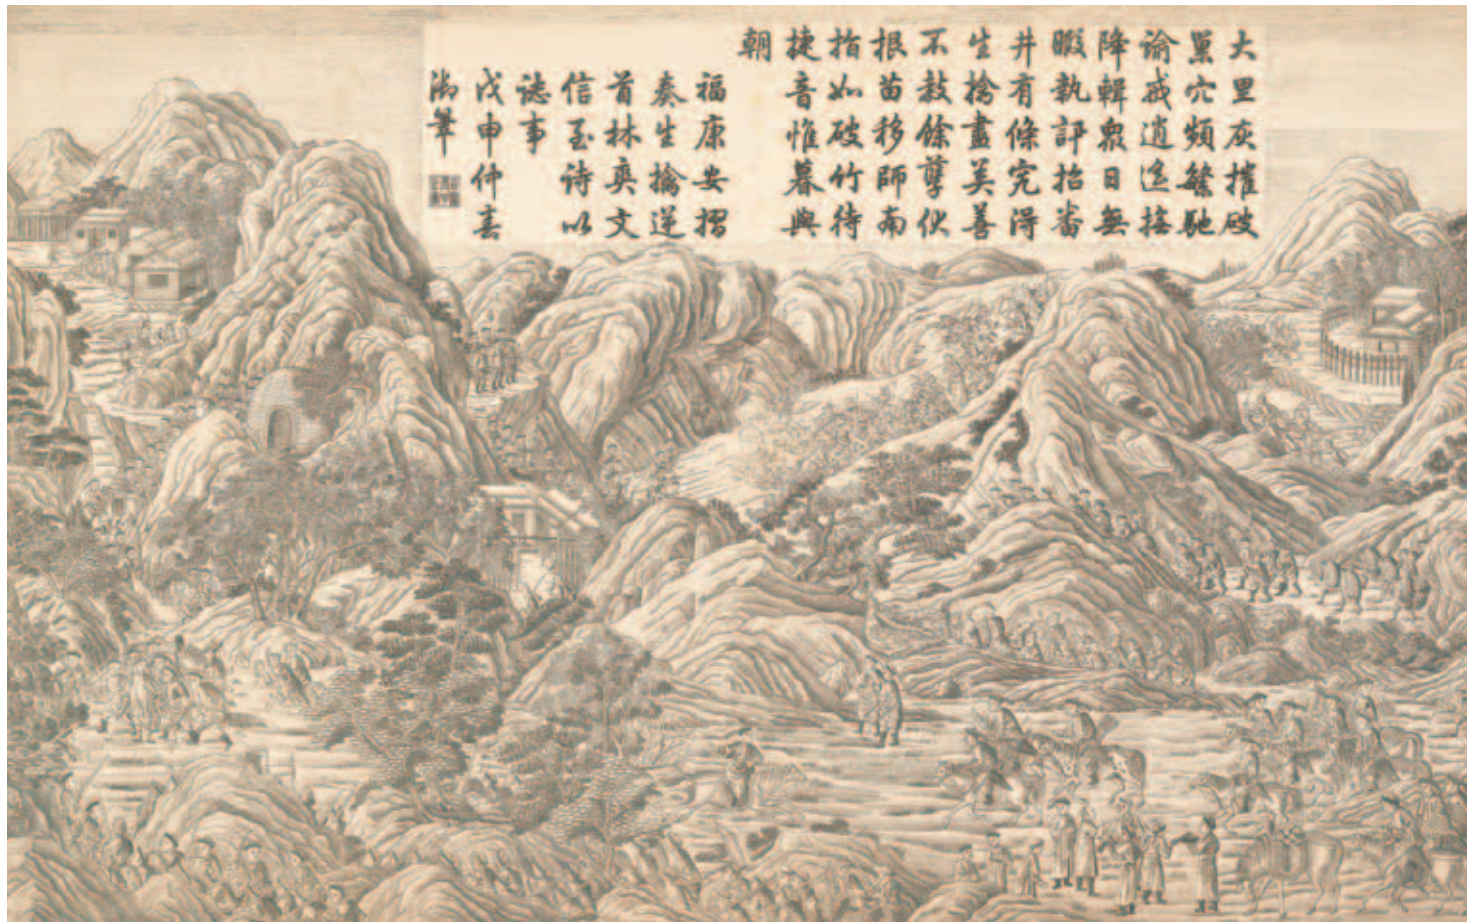 大里灰摧破
巢穴頻繁馳
諭戒逍遥撫
降輯衆日無
暇執訊招番
井有條究得
生擒盡美善
不教餘孽伏
根苗移師南
指如破竹待
捷音惟暮與
朝
福康安摺
奏生擒逆
首林爽文
信至詩以
誌事
戊申仲春
御筆